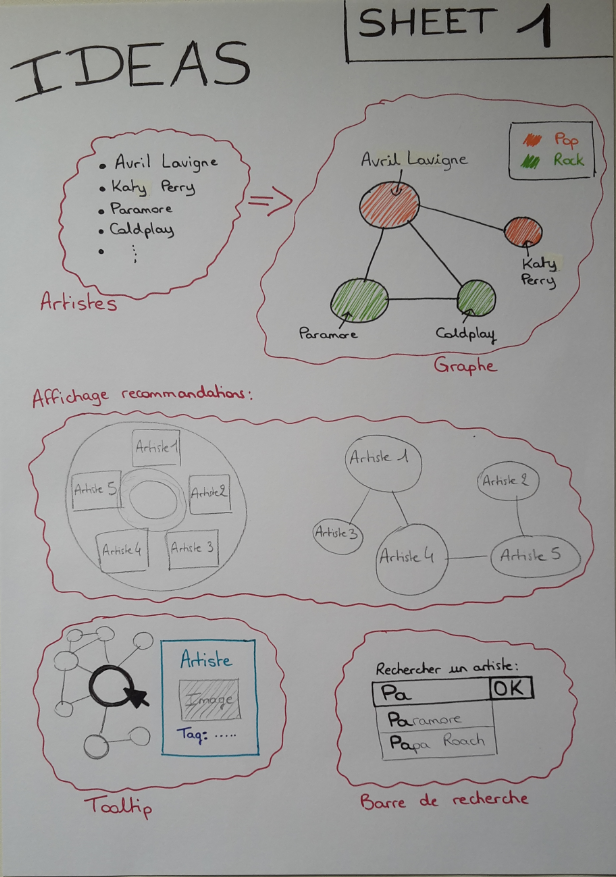 SHEET 1
IDEAS
• Avril Lavigne
• Katy Perry
• Paramore
• Coldplay
• ⋮
Artistes
Pop
Rock
Avril Lavigne
Katy
Perry
Paramore
Coldplay
Graphe
Affichage recommandations:
Artiste 1
Artiste 5
Artiste 2
Artiste 4
Artiste 3
Artiste 1
Artiste 2
Artiste 3
Artiste 4
Artiste 5
Artiste
Image
Tag: .....
Tooltip
Rechercher un artiste:
Pa
OK
Paramore
Papa Roach
Barre de recherche